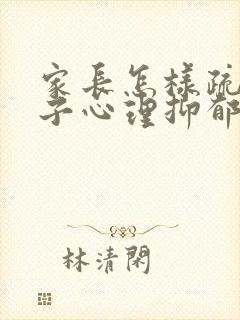 家長怎樣疏
子心理抑郁
林清閑